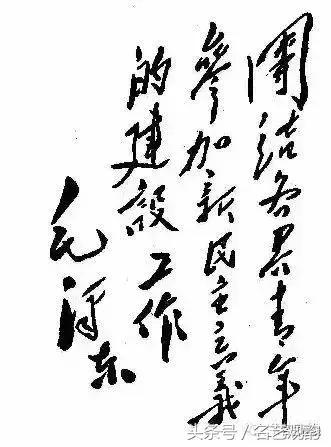 團結各界青年
參加新民主主義
的建設工作
毛澤东
头条号/名艺观韵